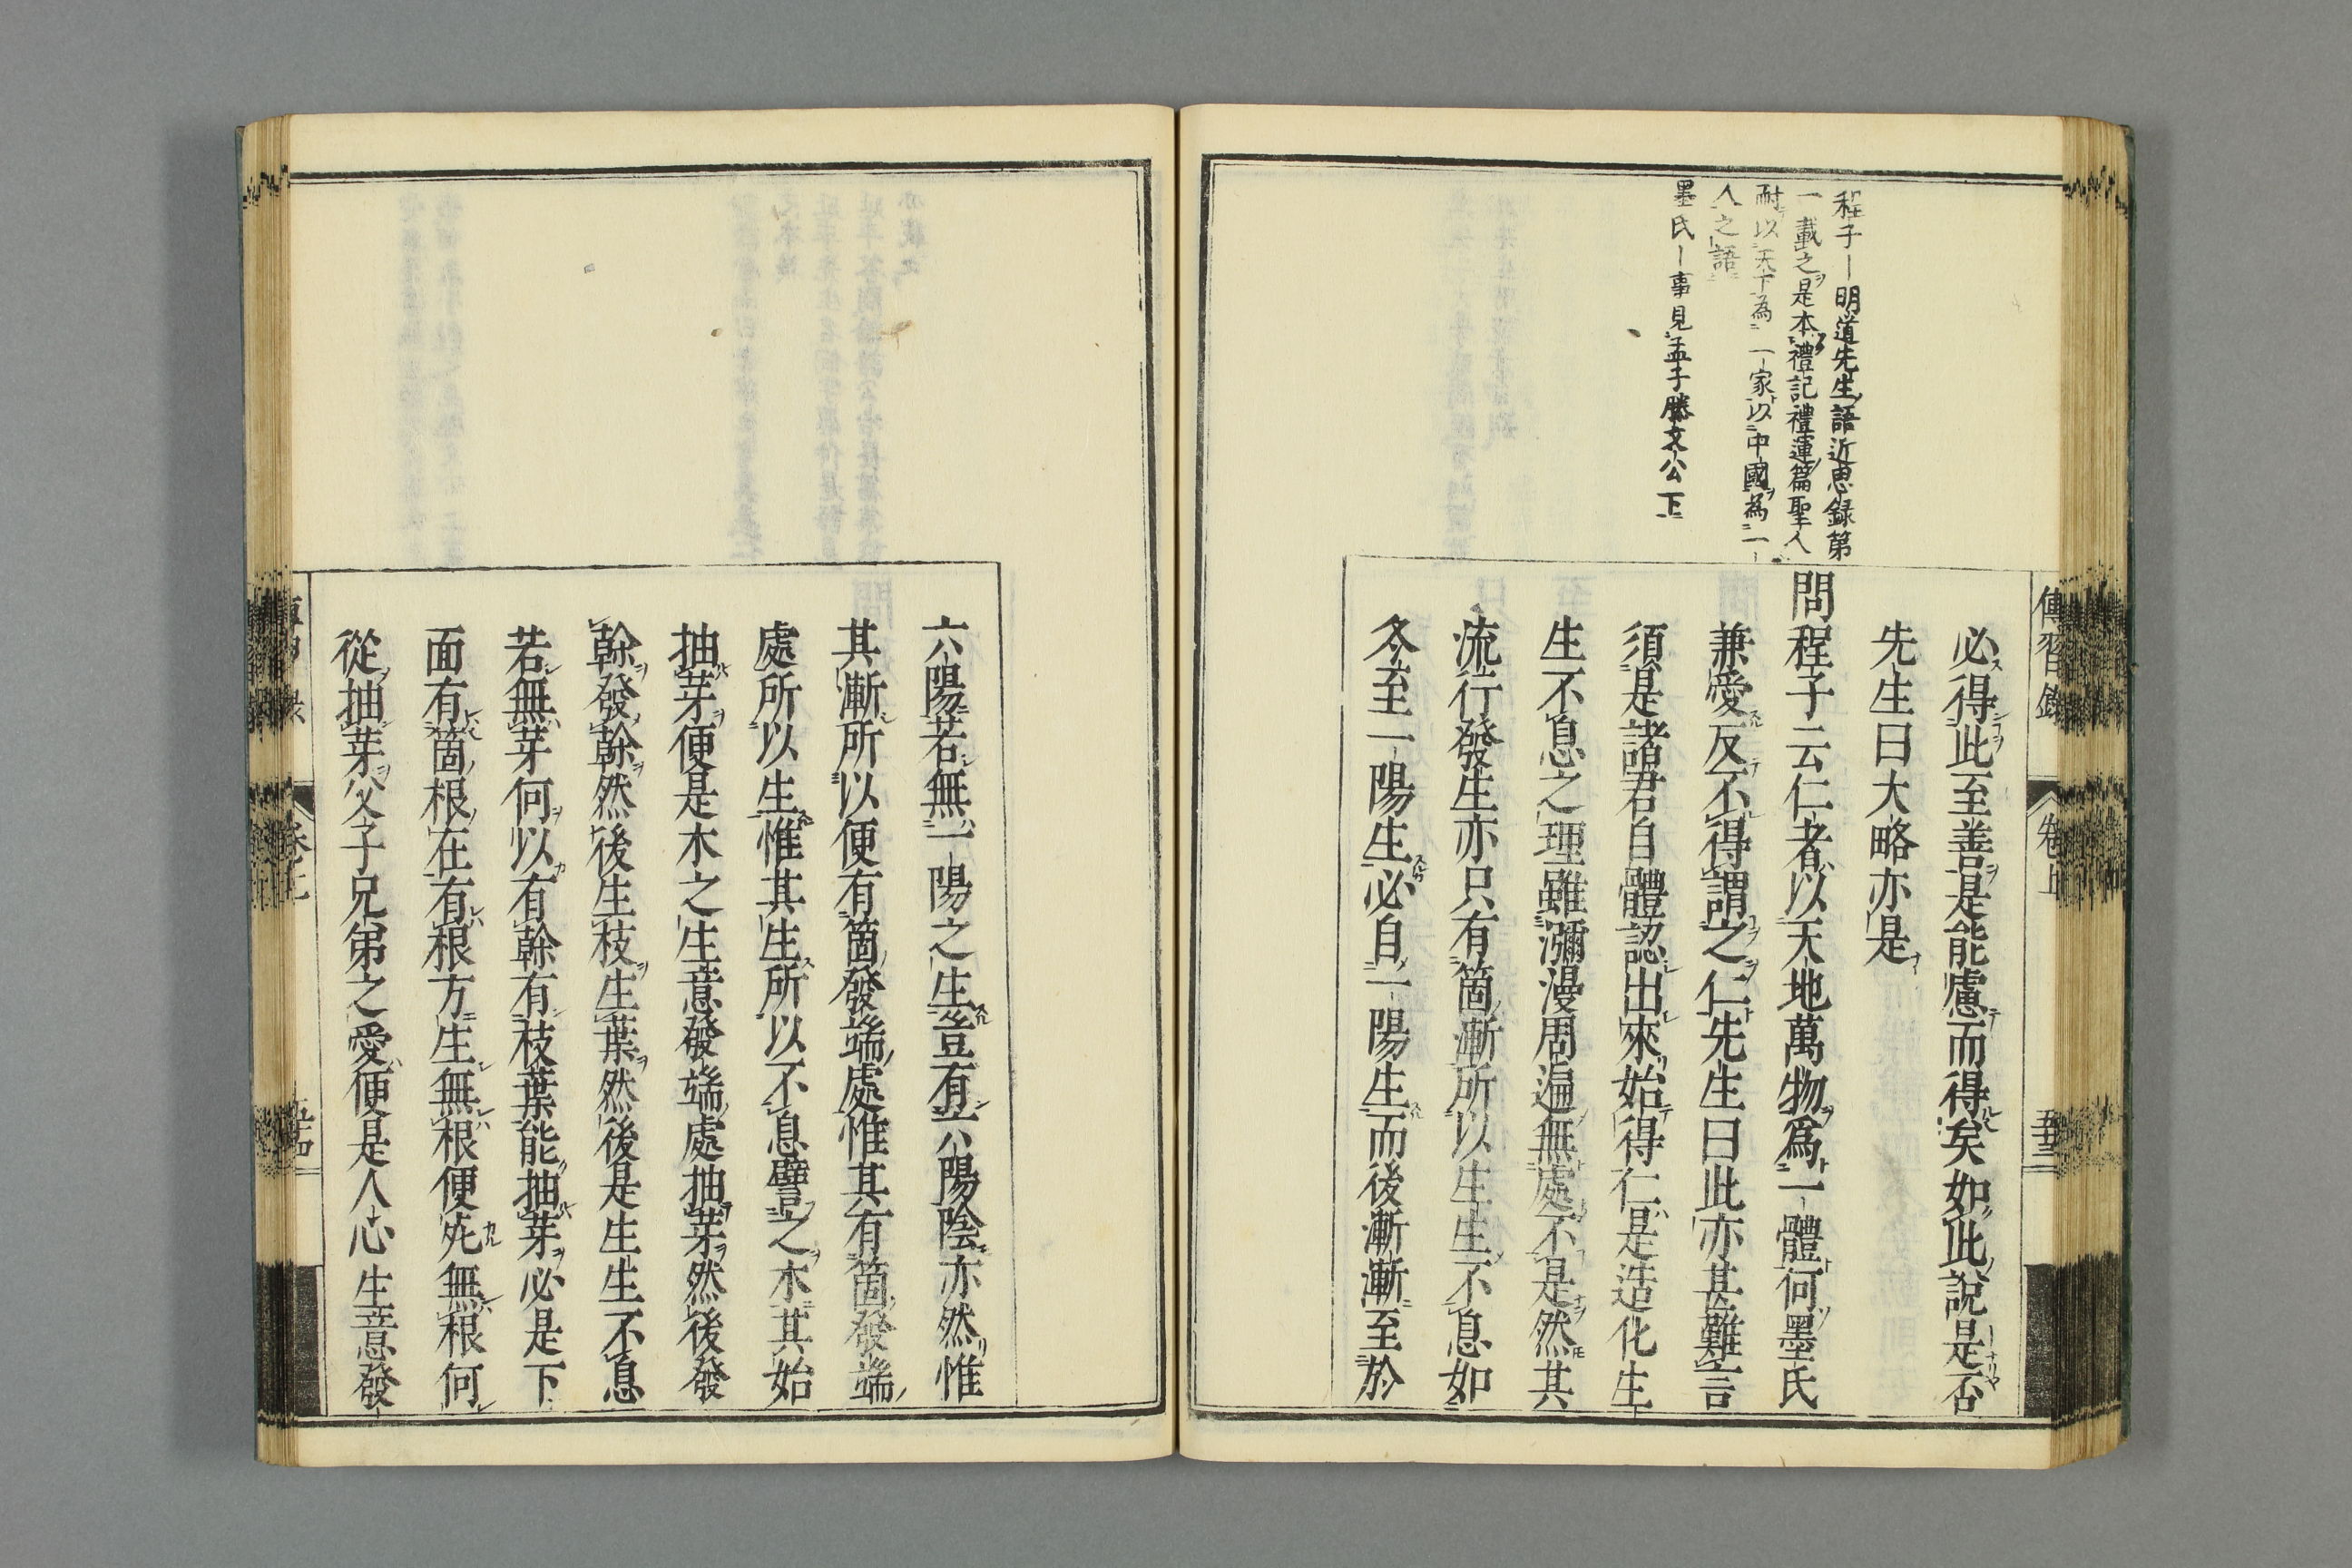 傳習錄
卷上
五十三
程子ー明道先生語近思録第
一載之是本禮記禮運篇聖人
耐以天下為一家以中國為一
人之語
墨氏ー事見孟子滕文公下
必得此至善是能慮而得矣如此說是否
先生曰大略亦是
問程子云仁者以天地萬物爲一體何墨氏
兼愛反不得謂之仁先生曰此亦甚難言
須是諸君自體認出來始得仁是造化生
生不息之理雖瀰漫周遍無處不是然其
流行發生亦只有箇漸所以生生不息如
冬至一陽生必自一陽生而後漸漸至於
六陽若無一陽之生豈有六陽陰亦然惟
其漸所以便有箇發端處惟其有箇發端
處所以生惟其生所以不息譬之木其始
抽芽便是木之生意發端處抽芽然後發
幹發幹然後生枝生葉然後是生生不息
若無芽何以有幹有枝葉能抽芽必是下
面有箇根在有根方生無根便死無根何
從抽芽父子兄弟之愛便是人心生意發